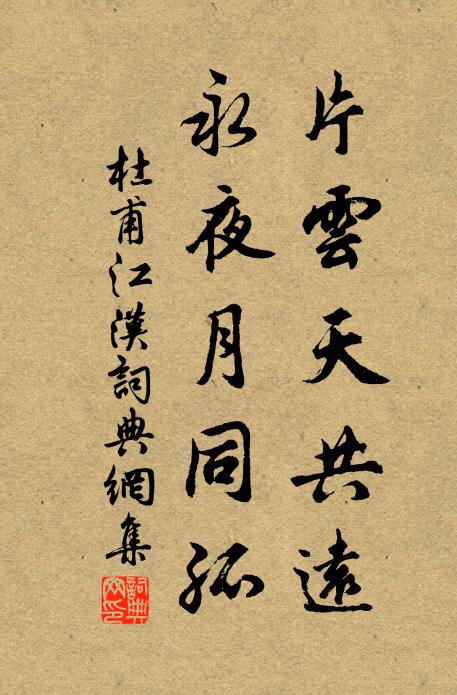 片雲天共遠
永夜月同孤
杜甫江漢詞典網集
詞典網印